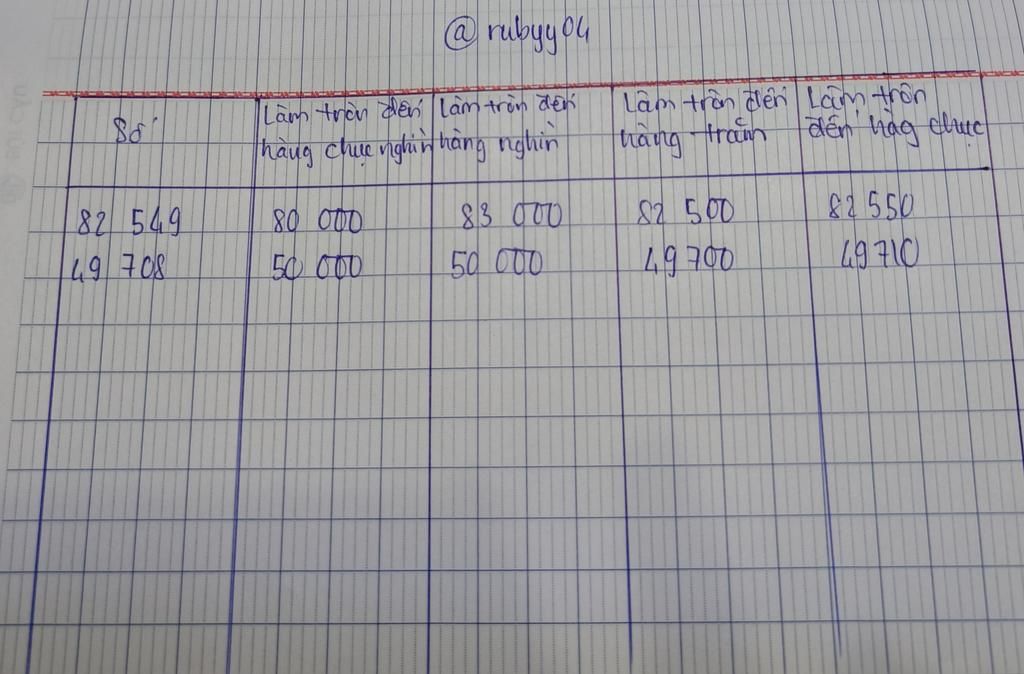 @rubyy04
Số
Làm tròn đến
hàng chục nghìn
Làm tròn đến
hàng nghìn
Làm tròn đến
hàng trăm
Làm tròn
đến hàg chục
82 549 80 000 83 000 82 500 82 550
49 708 50 000 50 000 49 700 49 710